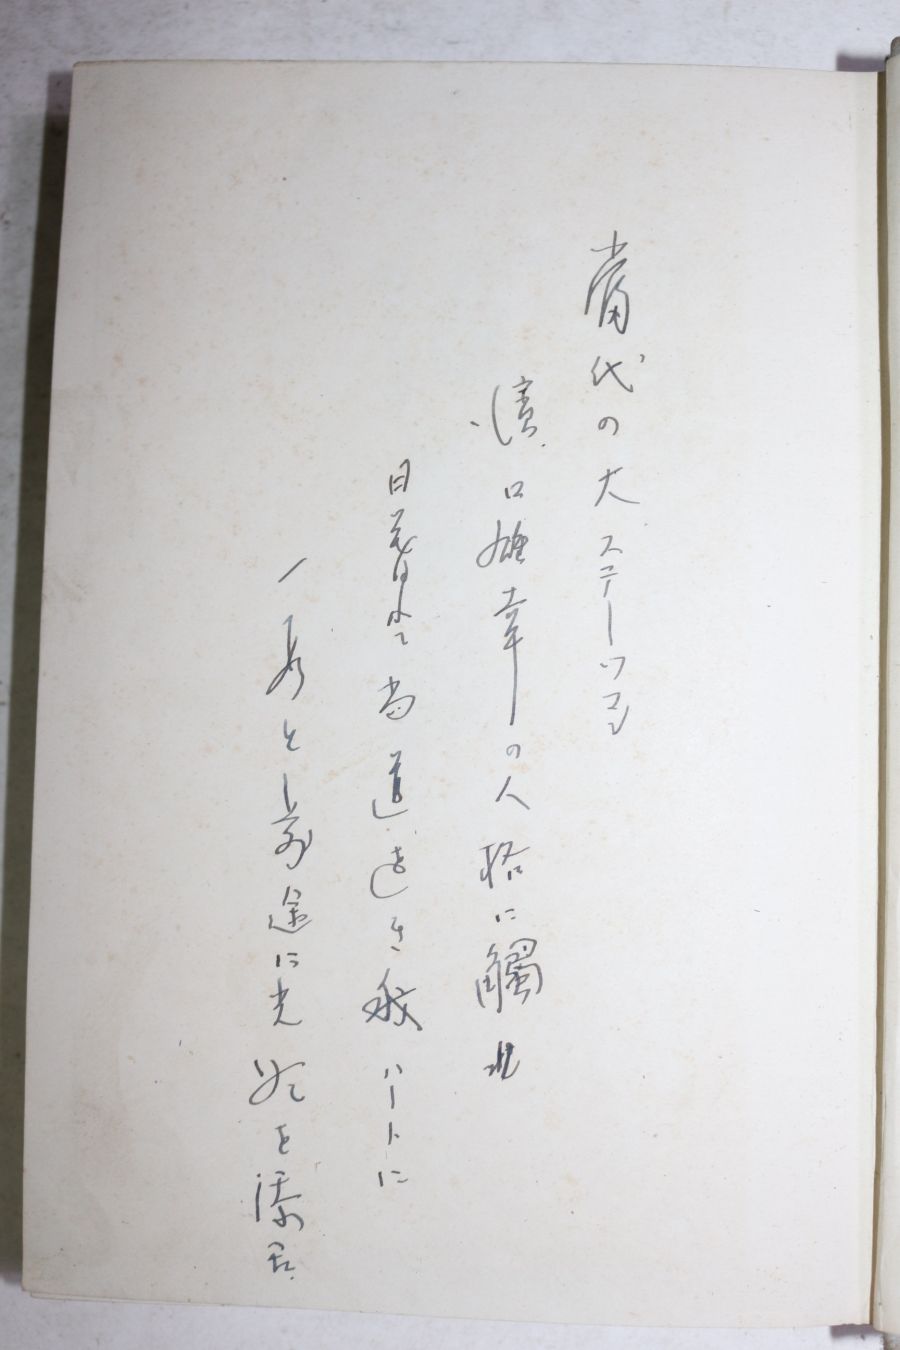 當代の大ステーツマン
濱口雄幸の人格に觸れ
日暮れて尚道遠き我ハートに
一長とし前途に光を添